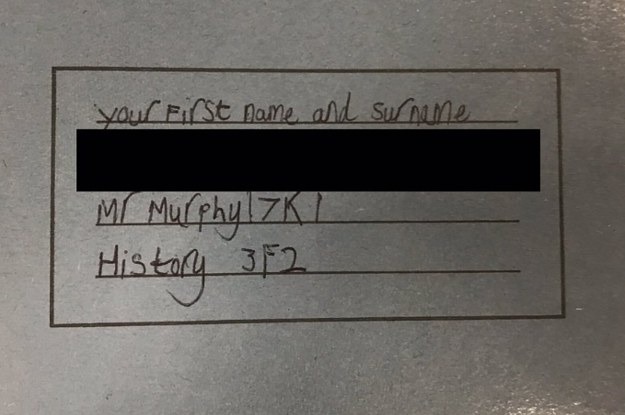 your First name and surname
Mr Murphy 17K1
History 3F2